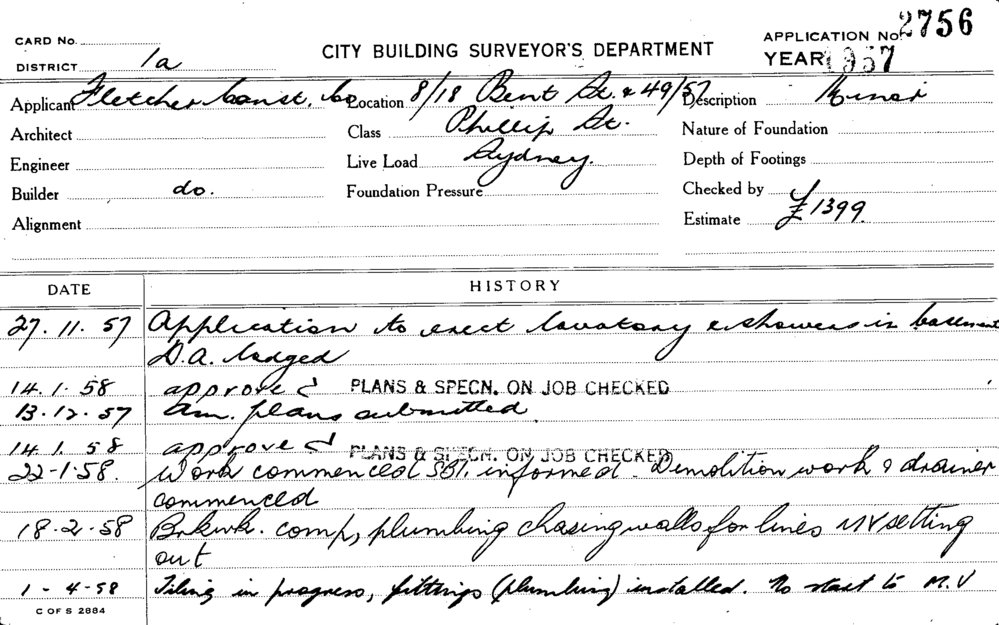 CARD No.
DISTRICT 1a
CITY BUILDING SURVEYOR'S DEPARTMENT
APPLICATION No. 2756
YEAR 1957
Applicant Fletcher Const. Co Location 8/18 Bent St. & 49/57 Description Minor
Architect Class Phillip St. Nature of Foundation
Engineer Live Load Sydney. Depth of Footings
Builder do. Foundation Pressure Checked by
Alignment Estimate £1399
DATE HISTORY
27.11.57 Application to erect lavatory & showers in basement
D.A. lodged
14.1.58 approved PLANS & SPECN. ON JOB CHECKED
13.12.57 Am. plans submitted.
14.1.58 approved PLANS & SPECN. ON JOB CHECKED
22-1-58. Work commenced SBI. informed. Demolition work & drainer
commenced
18.2.58 Brkwk. comp, plumbing chasing walls for lines MV setting
out
1-4-58 Tiling in progress, fittings (plumbing) installed. No start to M.V
C OF S 2884